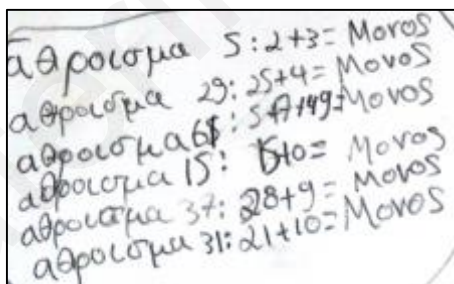 άθροισμα 5: 2+3= Μονος
άθροισμα 29: 25+4= Μονος
αθροισμα : +49= Μονος
αθροισμα 15: 5+10= Μονος
αθροισμα 37: 28+9= Μονος
αθροισμα 31: 21+10= Μονος